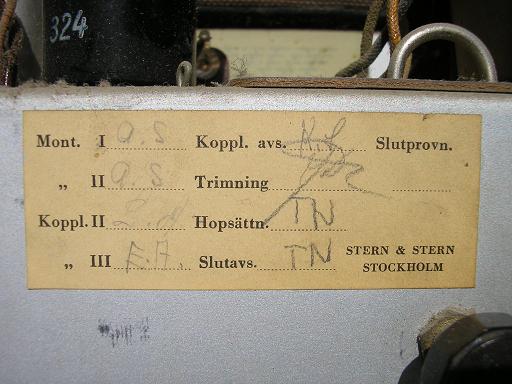 324
Mont. I a.s Koppl. avs. K.L Slutprovn.
„ II a.s Trimning
Koppl. II Hopsättn. TN
„ III E.A. Slutavs. TN STERN & STERN
STOCKHOLM